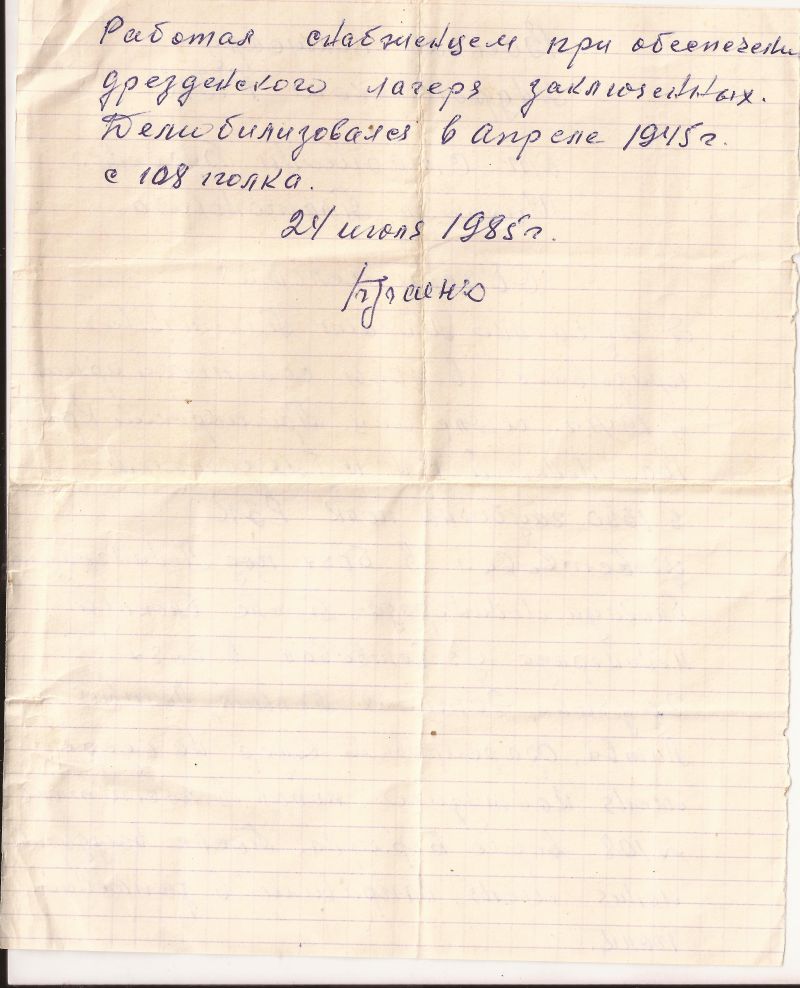 Работал снабженцем при обеспечени
дрезденского лагеря заключенных.
Демобилизовался в апреле 1945г.
с 108 полка.
24 июля 1985г.